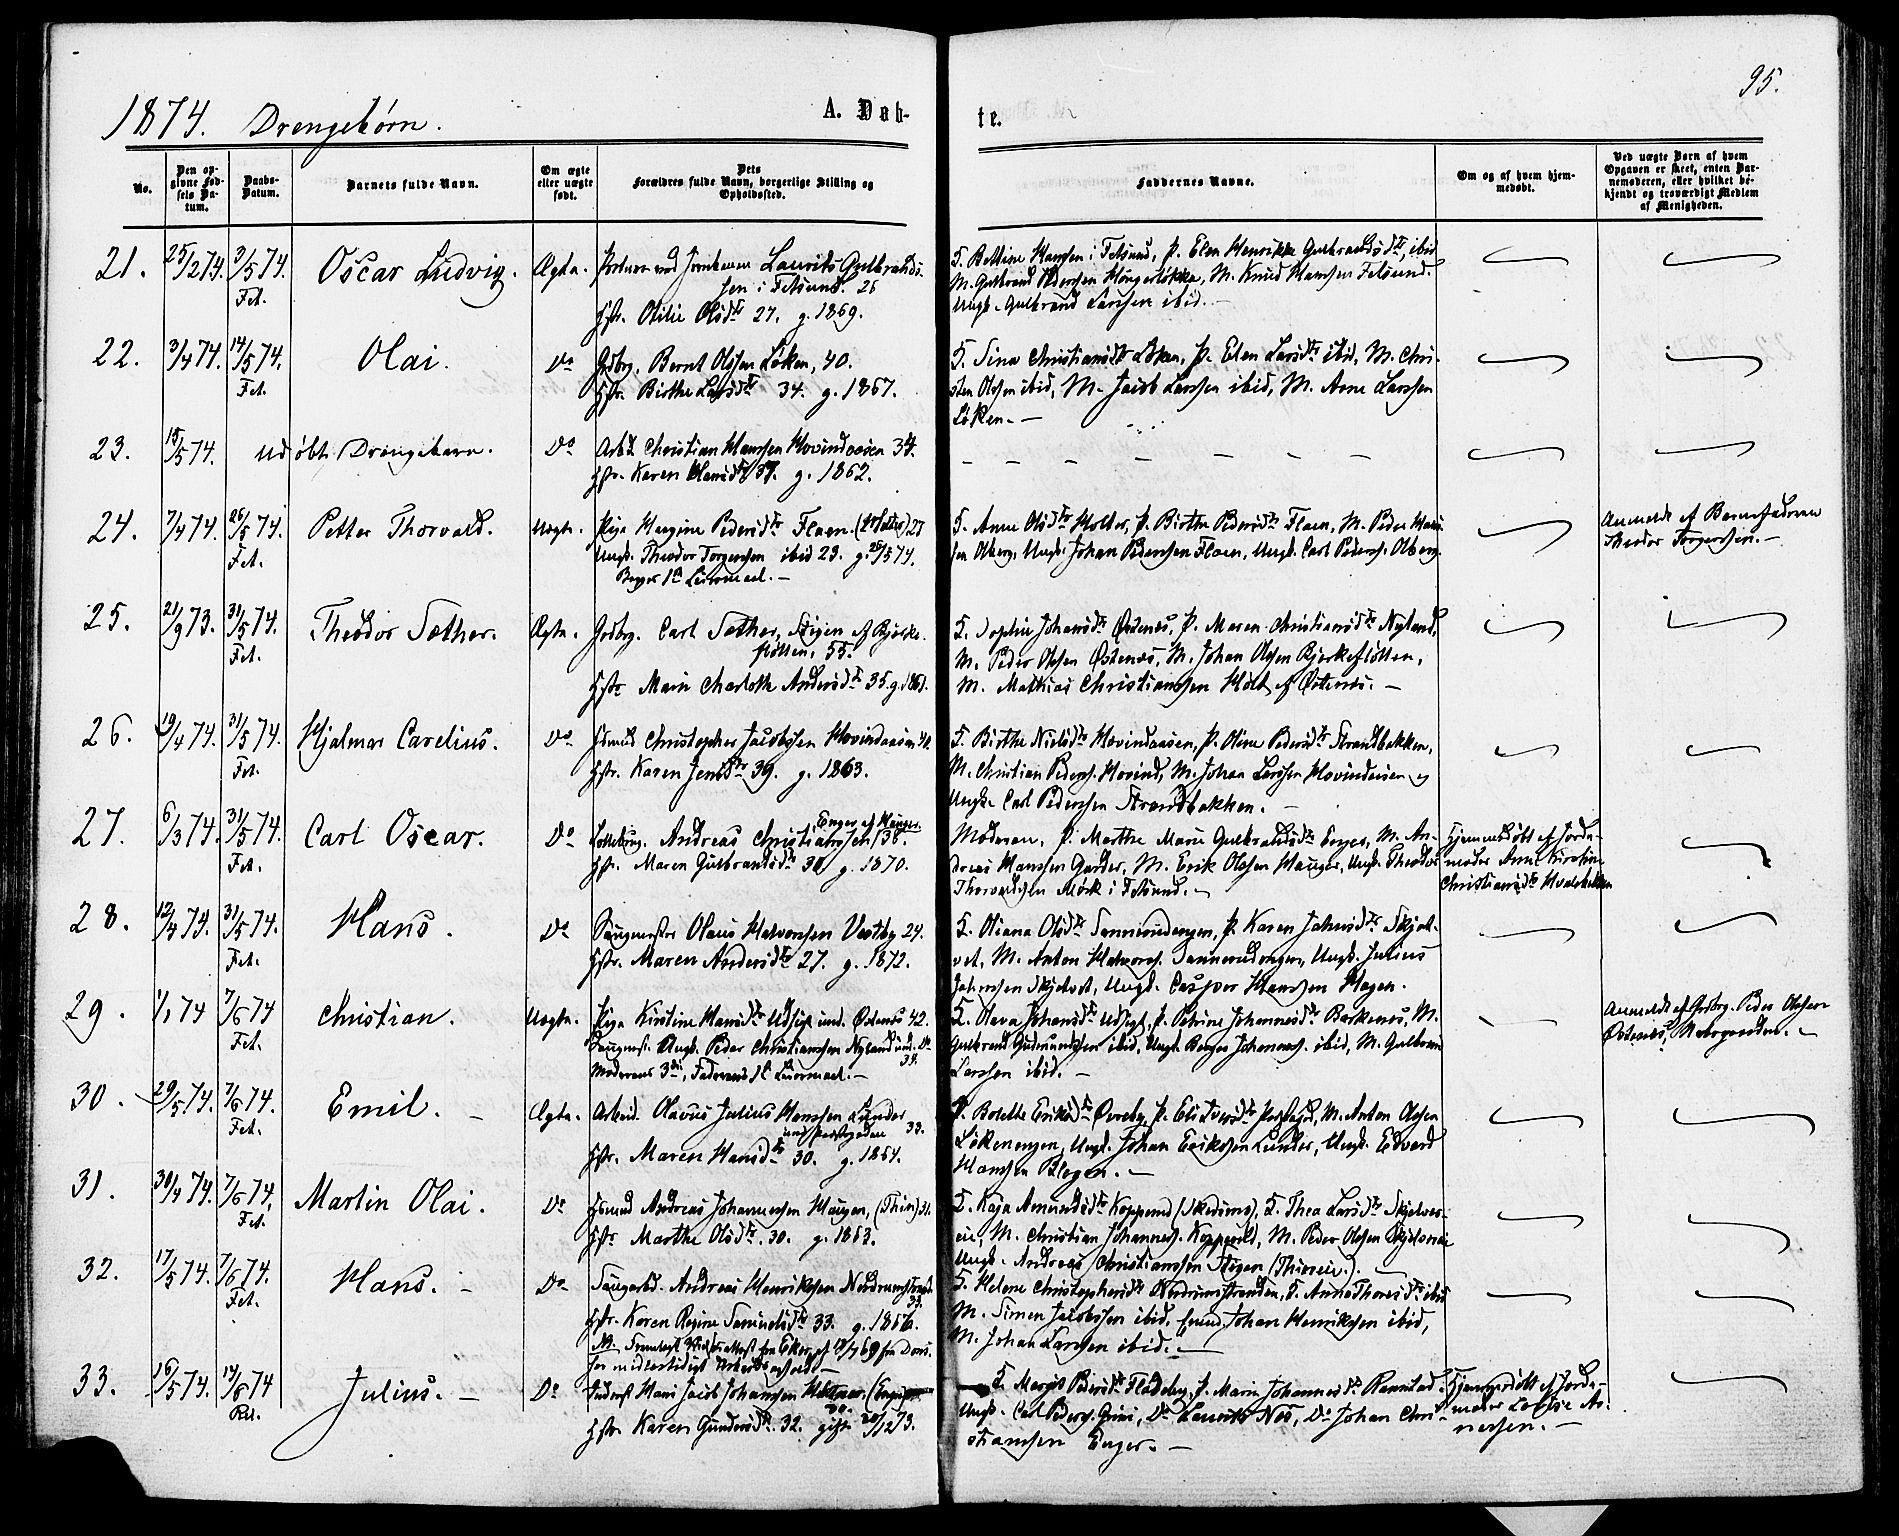 95.
1874. Drengebørn.
A. Døb-
te.
No.
Den op-
givne Fød-
sels Da-
tum.
Daabs-
Datum.
Barnets fulde Navn.
Om ægte
eller uægte
født.
Dets
Forældres fulde Navn, borgerlige Stilling og
Opholdssted.
Faddernes Navne.
Om og af hvem hjem-
medøbt.
Ved uægte Børn af hvem
Opgaven er skeet, enten Bar-
nemoderen, eller hvilket be-
kjendt og troværdigt Medlem
af Menigheden.
21. 25/2 74. 3/5 74. Oscar Ludvig. Ægta. ved Laurits Gulbrands-
Fet. sen i Fetsund. 26
Hstr. Otilie Olsdtr 27. g. 1869.
F. Bettine Hansen i Fetsund, P. Elen Henrikke Gulbrandsdtr, ibid
M. Gulbrand Pedersen, M. Knud Hansen Fetsund.
Ungk. Gulbrand Larsen ibid. -
22. 3/4 74. 14/5 74. Olai. Do Gdbrg. Bernt Olsen Løken, 40.
Fet. Hstr. Birthe Larsdtr 34. g. 1867.
F. Sina Christiansdtr Løken, P. Elen Larsdtr ibid, M. Chri-
sten Olsen ibid, M. Jacob Larsen ibid, M. Arne Larsen
Løken. -
23. 15/5 74. udøbt Drengebarn. Do Arbd. Christian Hansen Hovindaasen 34.
Hstr. Karen Hansdtr 37. g. 1862.
24. 7/4 74. 26/5 74. Petter Thorvald. Uægta. Pige Hergine Pedersdtr Flaen.
Fet. Ungk. Theodor Torgersen ibid 23. g. 26/5 74.
Begges 1ste Leiermaal. -
F. Anne Olsdtr Holter, P. Birthe Pedersdtr Flaen, M. Peder Han-
sen Olberg, Ungk. Johan Pedersen Flaen, Ungk. Carl Peders. Olberg.
Anmeldt af Barnefaderen
Theodor Torgersen. -
25. 21/9 73. 31/5 74. Theodor Sæther. Ægta. Gdbrg. Carl Sæther, Stigen af Bjerke-
Fet. fløtten, 55.
Hstr Marie Charlotte Andersdtr 35. g. 1861.
F. Sophie Johansdtr Østenes, P. Maren Christiansdtr Nyland,
M. Peder Olsen Østenes, M. Johan Olsen Bjerkefløtten,
M. Mathias Christiansen Holt af Østenes. -
26. 19/4 74. 31/5 74. Hjalmar Carelius. Do Hsmd Christopher Jacobsen Hovindaasen 40.
Fet. Hstr. Karen Jensdtr 39. g. 1863.
F. Birthe Nielsdtr Hovindaasen, P. Oline Pedersdtr Strandbakken,
M. Christian Peders. Hovind, M. Johan Larsen Hovindaasen og
Ungk. Carl Pedersen Strandbakken. -
27. 6/3 74. 31/5 74. Carl Oscar. Do Andreas Christiansen 38.
Enger af Hauger.
Fet. Hstr. Maren Gulbrandsdtr 31. g. 1870.
Moderen, P. Marthe Marie Gulbrandsdtr Enger, M. An-
dreas Hansen Garder, M. Erik Olsen Hauger, Ungk. Theodor
Thorvaldsen Mørk i Fetsund. -
Hjemmedøbt af Jorde-
moder Anne Kirstine
Christiansdtr Hvalsbakken
28. 12/4 74. 31/5 74. Hans. Do Saugmester Olaus Halvorsen Vestby 24.
Fet. Hstr. Maren Andersdtr 27. g. 1872.
F. Oliana Olsdtr Tannerudengen, P. Karen Jahnsdtr Skjel-
vet, M. Anton Halvors. Tannerudengen, Ungk. Julius
Jahnsen Skjelvet, Ungk. Casper Hansen Hagen.
29. 1/1 74 7/6 74 Christian. Uægta. Pige Kirstine Hansdtr Udsigt und. Østenes 42.
Fet. Ungk. Peder Christiansen Nyland und. Do
39.
Moderens 3die, Faderens 1ste Leiermaal. -
F. Olava Johansdtr Udsigt, P. Petrine Johannesdtr Barkenes, M.
Gulbrand Gudmundsen ibid, Ungk. Berger Johannes. ibid, M. Gulbrand
Larsen ibid. -
Anmeldt af Gdbrg. Peder Olsen
Østenes, Nordgaarden. -
30. 29/5 74. 7/6 74. Emil. - Ægta. Arbeid. Olavus Julius Hansen Lunder
Fet. und. Præstegaden 33.
Hstr. Maren Hansdtr 30. g. 1864.
P. Bolette Eriksdtr Øvreby, P. Elis Iversdtr, M. Anton Olsen
Løkenengen, Ungk. Johan Eriksen Lunder, Ungk. Edvard
Hansen Blegen. -
31. 30/4 74. 7/6 74. Martin Olai. Do Hsmd Andreas Johannesen Haugen, (Thien) 31.
Fet. Hstr Marthe Olsdtr. 30. g. 1863.
F. Kaja Amundsdtr Kopperud (Skedsmo), F. Thea Larsdtr Skjelver-
eie, M. Christian Johannes. Kopperud, M. Peder Olsen Skjelvereie
Ungk. Andreas Christiansen Stigen (Thieneie.).
32. 17/5 74. 7/6 74. Hans. - Do Saugarbd. Andreas Henriksen Nordrumstrand.
Fet. 33.
Hstr. Karen Regine Samuelsdtr 33. g. 1866.
fra Eker af 13/7 69 fra Dom.
for midlertidigt Arbeidsophold. -
F. Helene Christophersdtr Nordrumstranden, F. Anne Thoresdtr ibid
M. Simen Jacobsen ibid. Johan Henriksen ibid,
M. Johan Larsen ibid. -
33. 16/5 74. 14/6 74 Julius. - Do Hans Jacob Johansen (Enger)
Hstr Karen Gundersdtr. 32. gift 20/12 73.
F. Margit Pedersdtr Fladeby, P. Marie Johannesdtr Ramstad
Ungk. Carl Peders. Grini, Do Laurits Nes, Do Johan Chri-
stiansen Enger. -
Hjemmedøbt af Jorde-
moder Lovise Ar-
nesen. -